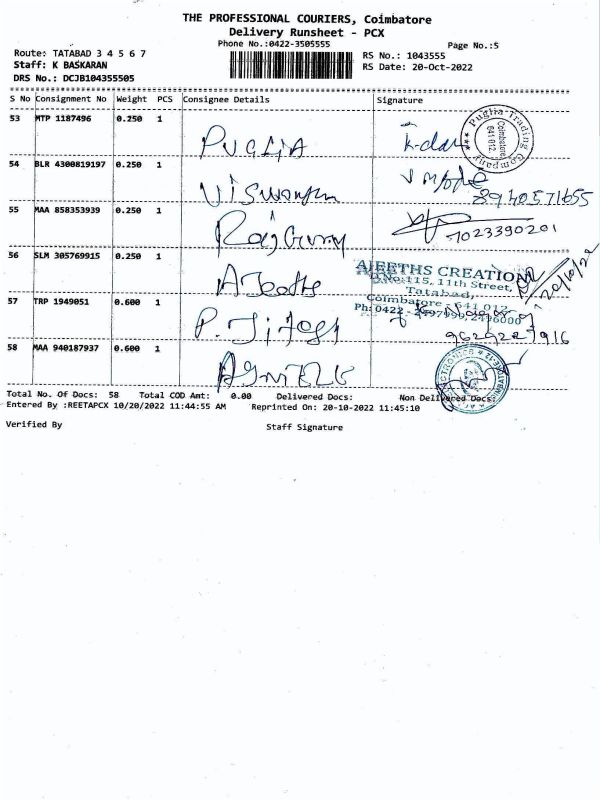 THE PROFESSIONAL COURIERS, Coimbatore
Delivery Runsheet - PCX
Phone No.:0422-3505555
Page No.:5
Route: TATABAD 3 4 5 6 7
RS No.: 1043555
Staff: K BASKARAN
RS Date: 20-Oct-2022
DRS No.: DCJB104355505
S No Consignment No Weight PCS Consignee Details Signature
53 MTP 1187496 0.250 1
PUGLIA
Puglia Trading Company
Coimbatore
641 012.
54 BLR 4300819197 0.250 1
8940571655
55 MAA 858353939 0.250 1
7023390201
56 SLM 305769915 0.250 1
AJEETHS CREATION
D.No:115, 11th Street,
Tatabad,
Coimbatore - 641 012
Ph: 0422 -
20/10/22
57 TRP 1949051 0.600 1
58 MAA 940187937 0.600 1
Total No. Of Docs: 58 Total COD Amt: 0.00 Delivered Docs: Non Delivered Docs:
Entered By :REETAPCX 10/20/2022 11:44:55 AM Reprinted On: 20-10-2022 11:45:10
Verified By Staff Signature